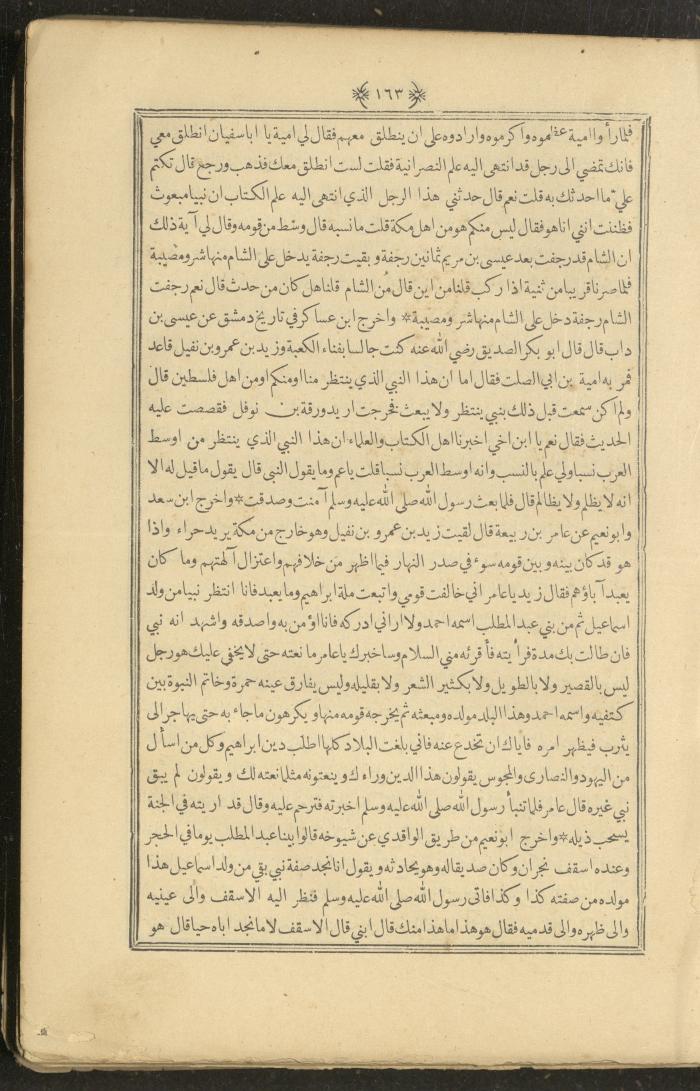 ١٦٣
فلما رأوا امية عظموه واكرموه وارادوه على ان ينطلق معهم فقال لي امية يا اباسفيان انطلق معي
فانك تمضي الى رجل قد انتهى اليه علم النصرانية فقلت لست انطلق معك فذهب ورجع قال تكتم
علي ما احدثك به قلت نعم قال حدثني هذا الرجل الذي انتهى اليه علم الكتاب ان نبيا مبعوث
فظننت انني انا هو فقال ليس منكم هو من اهل مكة قلت ما نسبه قال وسط من قومه وقال لي آية ذلك
ان الشام قد رجفت بعد عيسى بن مريم ثمانين رجفة وبقيت رجفة يدخل على الشام منها شر ومصيبة
فلما صرنا قريبا من ثنية اذا ركب قلنا من اين قال من الشام قلنا هل كان من حدث قال نعم رجفت
الشام رجفة دخل على الشام منها شر ومصيبة * واخرج ابن عساكر في تاريخ دمشق عن عيسى بن
داب قال قال ابو بكر الصديق رضي الله عنه كنت جالسا بفناء الكعبة وزيد بن عمرو بن نفيل قاعد
فمر به امية بن ابي الصلت فقال اما ان هذا النبي الذي ينتظر منا او منكم او من اهل فلسطين قال
ولم اكن سمعت قبل ذلك بنبي ينتظر ولا يبعث فخرجت اريد ورقة بن نوفل فقصصت عليه
الحديث فقال نعم يا ابن اخي اخبرنا اهل الكتاب والعلماء ان هذا النبي الذي ينتظر من اوسط
العرب نسبا ولي علم بالنسب وانه اوسط العرب نسبا قلت يا عم وما يقول النبي قال يقول ما قيل له الا
انه لا يظلم ولا يظالم قال فلما بعث رسول الله صلى الله عليه وسلم آمنت وصدقت * واخرج ابن سعد
وابو نعيم عن عامر بن ربيعة قال لقيت زيد بن عمرو بن نفيل وهو خارج من مكة يريد حراء واذا
هو قد كان بينه وبين قومه سوء في صدر النهار فيما اظهر من خلافهم واعتزال آلهتهم وما كان
يعبد آباؤهم فقال زيد يا عامر اني خالفت قومي واتبعت ملة ابراهيم وما يعبد فانا انتظر نبيا من ولد
اسماعيل ثم من بني عبد المطلب اسمه احمد ولا اراني ادركه فانا اؤمن به واصدقه واشهد انه نبي
فان طالت بك مدة فرأيته فأقرئه مني السلام وساخبرك يا عامر ما نعته حتى لا يخفى عليك هو رجل
ليس بالقصير ولا بالطويل ولا بكثير الشعر ولا بقليله وليس يفارق عينه حمرة وخاتم النبوة بين
كتفيه واسمه احمد وهذا البلد مولده ومبعثه ثم يخرجه قومه منها ويكرهون ما جاء به حتى يهاجر الى
يثرب فيظهر امره فاياك ان تخدع عنه فاني بلغت البلاد كلها اطلب دين ابراهيم وكل من اسأل
من اليهود والنصارى والمجوس يقولون هذا الدين وراءك وينعتونه مثل ما نعته لك ويقولون لم يبق
نبي غيره قال عامر فلما تنبأ رسول الله صلى الله عليه وسلم اخبرته فترحم عليه وقال قد اريته في الجنة
يسحب ذيله * واخرج ابو نعيم من طريق الواقدي عن شيوخه قالوا بينا عبد المطلب يوما في الحجر
وعنده اسقف نجران وكان صديقا له وهو يحادثه ويقول انا نجد صفة نبي بقي من ولد اسماعيل هذا
مولده من صفته كذا وكذا فاتى رسول الله صلى الله عليه وسلم فنظر اليه الاسقف والى عينيه
والى ظهره والى قدميه فقال هو هذا ما هذا منك قال ابني قال الاسقف لا ما نجد اباه حيا قال هو